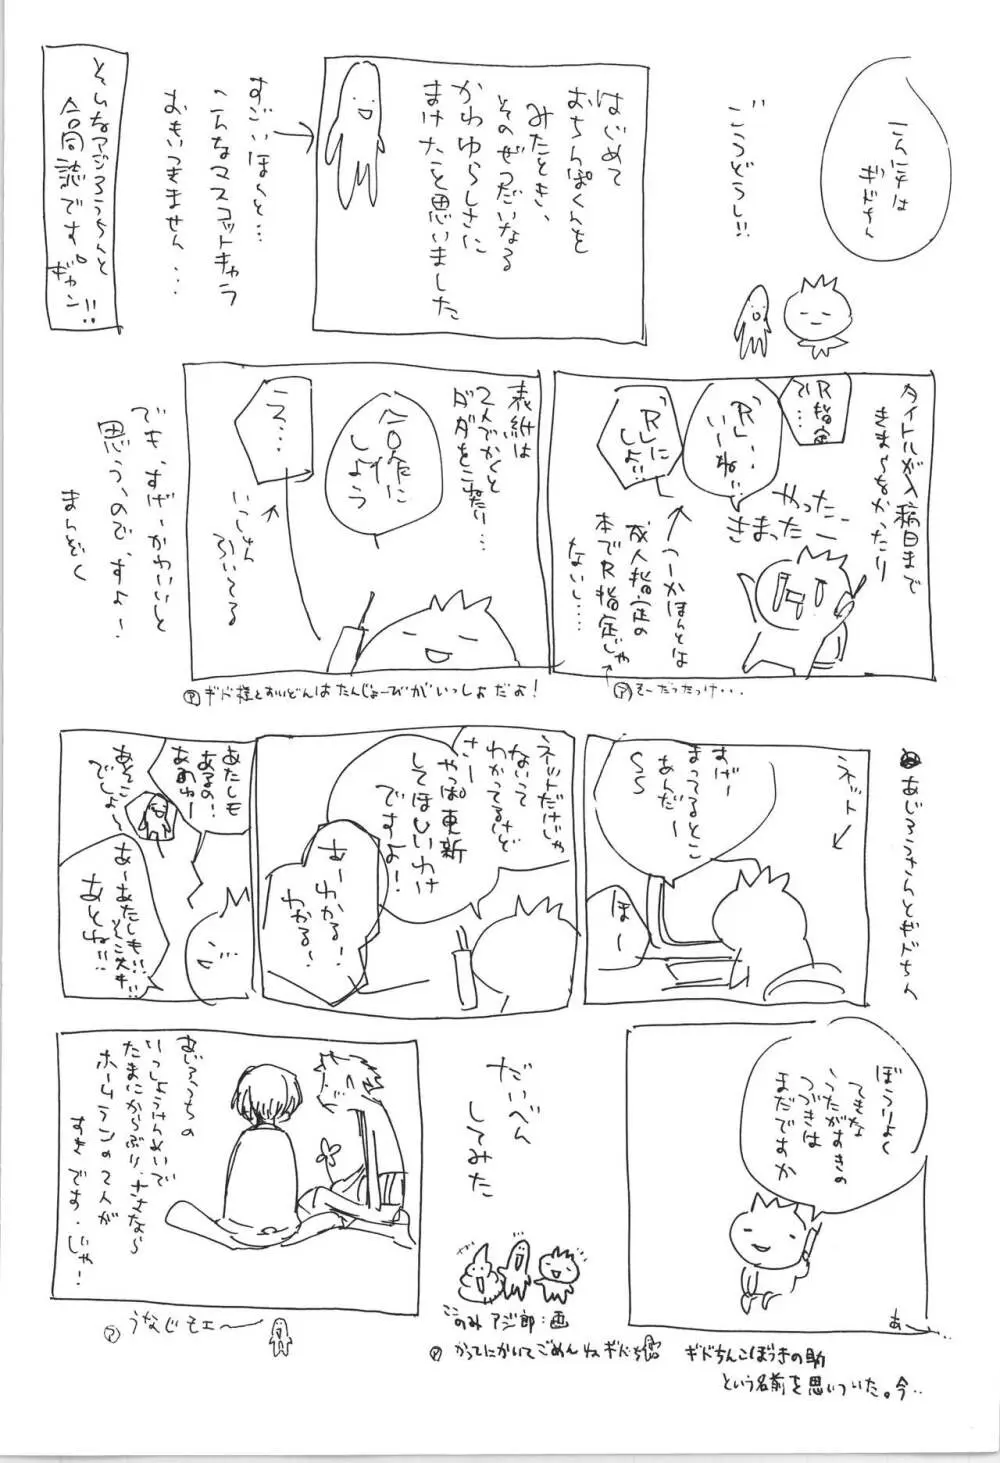 こんにちは
ギドちん
ごうどうし!!
はじめて
おちんぽくんを
みたとき、
そのぜつだいなる
かわゆらしさに
まけたと思いました
すごいほんと…
こんなマスコットキャラ
おもいつきません…
そんなアジろうちんと
合同誌です。ギャン!!
タイトルが入稿日まで
きまらなかったり
R指定
で…
「RL…
いーね…
「RLに
しよ…
やったー
きまったー
つーかほんとは
成人指定の
本でR指定じゃ
ない し…
ア そーだったっけ…
表紙は
2人でかくと
ダダをこねたり…
合作に
しよう
え…
いっしゅん
ふいてる
でも、すげーかわいいと
思う、ので、すよ!
まんぞく
ア ギド様とすいどんはたんじょーびがいっしょだよ!
あじろうさんとギドちん
ネット
すげー
まってるとこ
あんだー
ほー
ネットだけじゃ
ないって
わかってるけど
さー
やっぱ更新
してほしいわけ
ですよ!
あーわかる!
わかる!
あたしも
あるの!
あのねー
あそこ
でしょ〜
あーあたしも…
そこ大キ…
あとね…
ぼうりょく
てきな
うたがすきの
つづきは
まだですか
あ〜
だいべん
してみた
このみアジ郎:画
ア かってにかいてごめんねギドち
ギドちんこぼうきの助
という名前を思いついた。今‥
あじろうちの
いっしょうけんめいで
たまにからぶり、なさなら
ホームランの2人が
すきです。じゃ!
ア うなじモエ〜